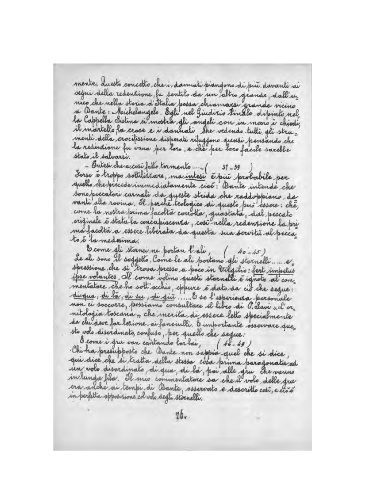 mente. Questo concetto, che i dannati piangono di più davanti ai
segni della redenzione, fu sentito da un altro grande, dall'u-
nico che nella storia d'Italia possa chiamarsi grande vicino
a Dante: Michelangelo. Egli nel Giudizio Finale dipinto nel-
la Cappella Sistina ci mostra gli angeli con in mano i chiodi
il martello la croce e i dannati che vedendo tutti gli stru-
menti della crocifissione disperati rifuggono quasi pensando che
la redenzione fu vana per loro, e che per loro facile sarebbe
stato il salvarsi.
— Intesi che a così fatto tormento ..... ( 37-39
Forse è troppo sottilizzare, ma intesi è più probabile, per
quello che precede immediatamente cioè: Dante intende che
sono peccatori carnali da queste strida che raddoppiano, da-
vanti alla rovina. Il perchè teologico di questo può essere: che,
come la nostra prima facoltà corrotta, guastata, dal peccato
originale è stata la concupiscenza, così nella redenzione la pri
ma facoltà a essere liberata da questa sua servitù al pecca-
to è la medesima.
E come gli stornei ne portan l'ali, ( 40-45)
Le ali sono il soggetto. Come le ali portano gli stornelli..... e-
spressione che si trova presso a poco in Virgilio: fert impetus
ipse volantes. Il come volino questi stornelli è ignoto al com-
mentatore che ho sott'occhio, eppure è dato da ciò che segue:
di qua, di là, di su, di giù ..... E se l'esperienza personale
non ci soccorre, possiamo consultare il libro di P. Savi, "l'or-
nitologia toscana", che merita di essere letto specialmente
da chi deve far lezione ai fanciulli. È importante osservare que-
sto volo disordinato, confuso, per quello che segue.
E come i gru van cantando lor lai, ( 46-49)
Chi ha presupposto che Dante non sappia quel che si dice,
qui dice che si tratta della stessa cosa prima paragonata ad
un volo disordinato, di qua, di là, poi alle gru che vanno
in lunga fila. Il mio commentatore sa che il volo delle gru
era anche ai tempi di Dante, osservato e descritto così, e ciò è
in perfetta opposizione col volo degli stornelli.
26.